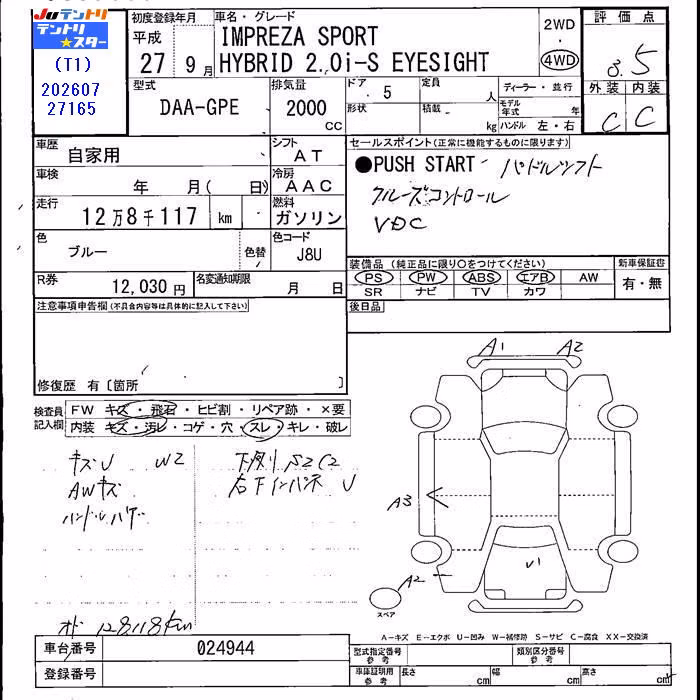 Juテントリ
テントリ★スター
(T1)
202607
27165
初度登録年月
平成
27 9月
車名・グレード
IMPREZA SPORT
HYBRID 2.0i-S EYESIGHT
2WD
4WD
評価点
3.5
外装 内装
C C
型式
DAA-GPE
排気量
2000
CC
ドア
5
形状
定員
人
積載
kg
ディーラー・並行
モデル年式 年
ハンドル 左・右
車歴
自家用
シフト
AT
車検
年 月( 日)
冷房
AAC
走行
12万8千117 km
燃料
ガソリン
色
ブルー
色替
色コード
J8U
R券
12,030円
名変通知期限
月 日
セールスポイント(正常に機能するものに限ります)
●PUSH START パドルシフト
クルーズコントロール
VDC
装備品(純正品に限り○をつけてください)
PS PW ABS エアB AW
SR ナビ TV カワ
新車保証書
有・無
後日品
注意事項申告欄(不具合内容等は具体的に記入して下さい)
修復歴 有〔箇所 〕
検査員記入欄
FW キズ・飛石・ヒビ割・リペア跡・×要
内装 キズ・汚レ・コゲ・穴・スレ・キレ・破レ
キズU W2
AWキズ
ハンドルハゲ
下廻り S2C2
右下インパネ U
オド 128118km
A1 A2
A3
A2
U1
スペア
A-キズ E-エクボ U-凹み W-補修跡 S-サビ C-腐食 XX-交換済
車台番号
024944
登録番号
型式指定番号
参考
類別区分番号
参考
車庫証明用
参考
長さ cm
幅 cm
高さ cm